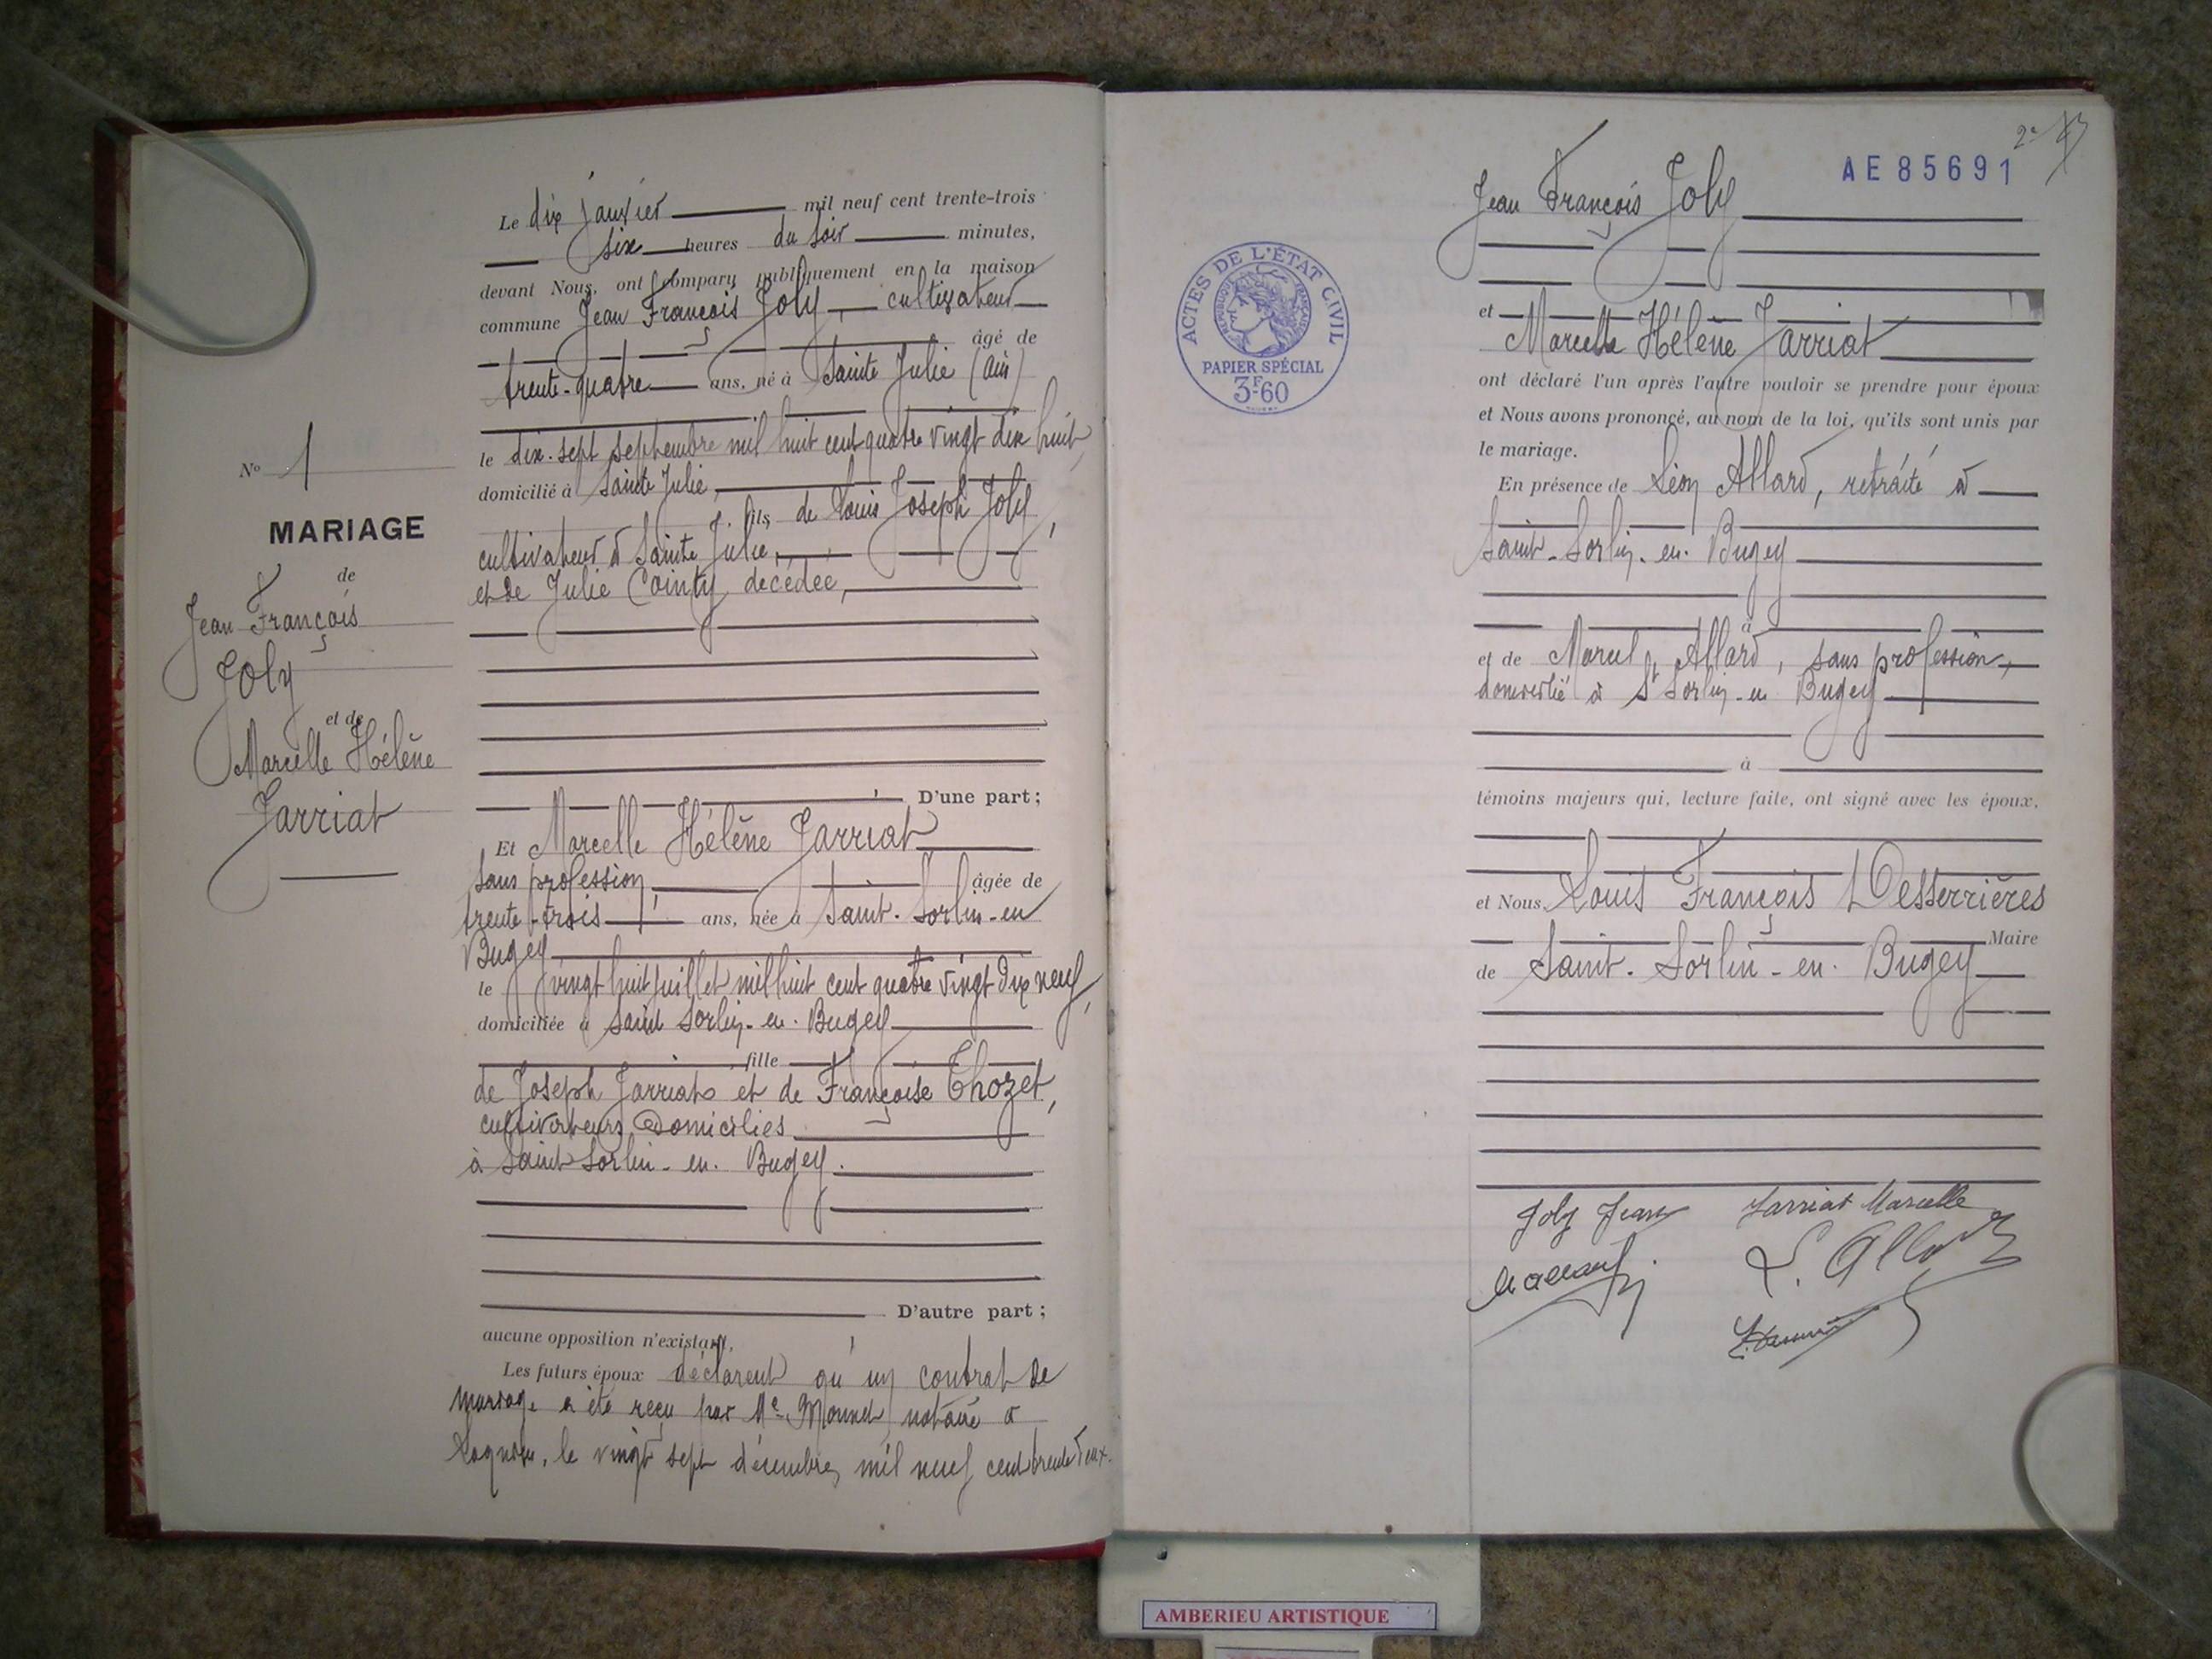 Le dix janvier mil neuf cent trente-trois
six heures du soir minutes,
devant Nous, ont comparu publiquement en la maison
commune Jean François Joly, cultivateur
âgé de
trente-quatre ans, né à Sainte Julie (Ain)
le dix-sept septembre mil huit cent quatre vingt dix huit,
domicilié à Sainte Julie,
fils de Louis Joseph Joly,
cultivateur à Sainte Julie,
et de Julie Cointy décédée,
D'une part;
Et Marcelle Hélène Jarriat
sans profession, âgée de
trente-trois ans, née à Saint-Sorlin-en
Bugey
le vingt huit juillet mil huit cent quatre vingt dix neuf,
domiciliée à Saint Sorlin-en-Bugey
fille
de Joseph Jarriat et de Françoise Thozet,
cultivateurs domiciliés
à Saint Sorlin-en-Bugey.
D'autre part;
aucune opposition n'existant,
Les futurs époux déclarent qu'un contrat de
mariage a été reçu par Me notaire à
Lagnieu, le vingt sept décembre mil neuf cent trente deux.
No 1
MARIAGE
de
Jean François
Joly
et de
Marcelle Hélène
Jarriat
2e
AE 85691
ACTES DE L'ÉTAT CIVIL
RÉPUBLIQUE FRANÇAISE
PAPIER SPÉCIAL
3F-60
Jean François Joly
et
Marcelle Hélène Jarriat
ont déclaré l'un après l'autre vouloir se prendre pour époux
et Nous avons prononcé, au nom de la loi, qu'ils sont unis par
le mariage.
En présence de Léon Allard, retraité à
Saint-Sorlin-en-Bugey
à
et de Marcel Allard, sans profession,
domicilié à St Sorlin-en Bugey
à
témoins majeurs qui, lecture faite, ont signé avec les époux,
et Nous, Louis François Desserrières
Maire
de Saint-Sorlin-en-Bugey
Joly Jean Jarriat Marcelle
M Allard L. Allard
AMBERIEU ARTISTIQUE